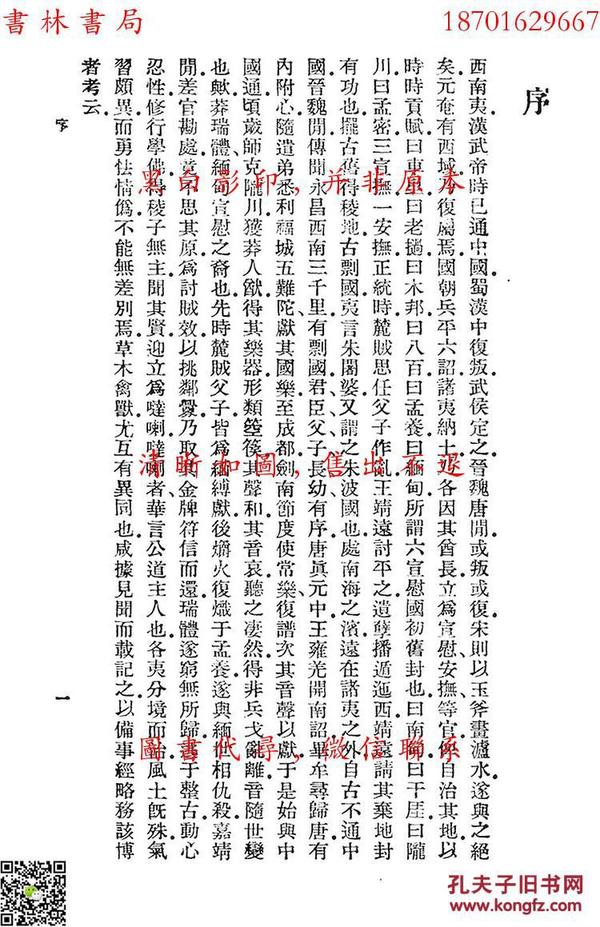 書林書局
18701629667
序
西南夷漢武帝時已通中國蜀漢中復叛武侯定之晉魏唐間或叛或復宋則以玉斧畫瀘水遂與之絕
矣元奄有西域復屬焉國朝兵平六詔諸夷納土各因其酋長立爲宣慰安撫等官俾自治其地以
時時貢賦曰車里曰老撾曰木邦曰八百曰孟養曰緬甸所謂六宣慰國初舊封也曰南甸曰干崖曰隴
川曰孟密三宣撫一安撫正統時麓賊思任父子作亂王靖遠討平之遺孽播遁迤西靖遠請其棄地封
有功也擺古舊得稜地古剽國夷言朱闍婆又謂之朱波國也處南海之濱遠在諸夷之外自古不通中
國晉魏間傳聞永昌西南三千里有剽國君臣父子長幼有序唐眞元中王雍羌開南詔異牟尋歸唐有
內附心隨遣弟悉利福城五難陀獻其國樂至成都劍南節度使常樂復譜次其音聲以獻于是始與中
國通頃歲師克隴川獲莽人獻得其樂器形類箜篌其聲和其音哀聽之凄然得非兵戈亂離音隨世變
也歟莽瑞體緬甸宣慰之裔也先時麓賊父子皆爲緬縛獻後爝火復熾于孟養遂與緬世相仇殺嘉靖
間差官勘處意不思其原爲討賊效以挑鄰釁乃取其金牌符信而還瑞體遂窮無所歸于整古動心
忍性修行學佛得稜子無主聞其賢迎立爲噠喇噠喇者華言公道主人也各夷分境而治風土旣殊氣
習頗異而勇怯情僞不能無差別焉草木禽獸尤互有異同也咸據見聞而載記之以備事經略務該博
者考云
序
一
黑白影印，并非原本
清晰如圖，售出不退
圖書代尋，微信聯系
孔夫子旧书网
www.kongfz.com